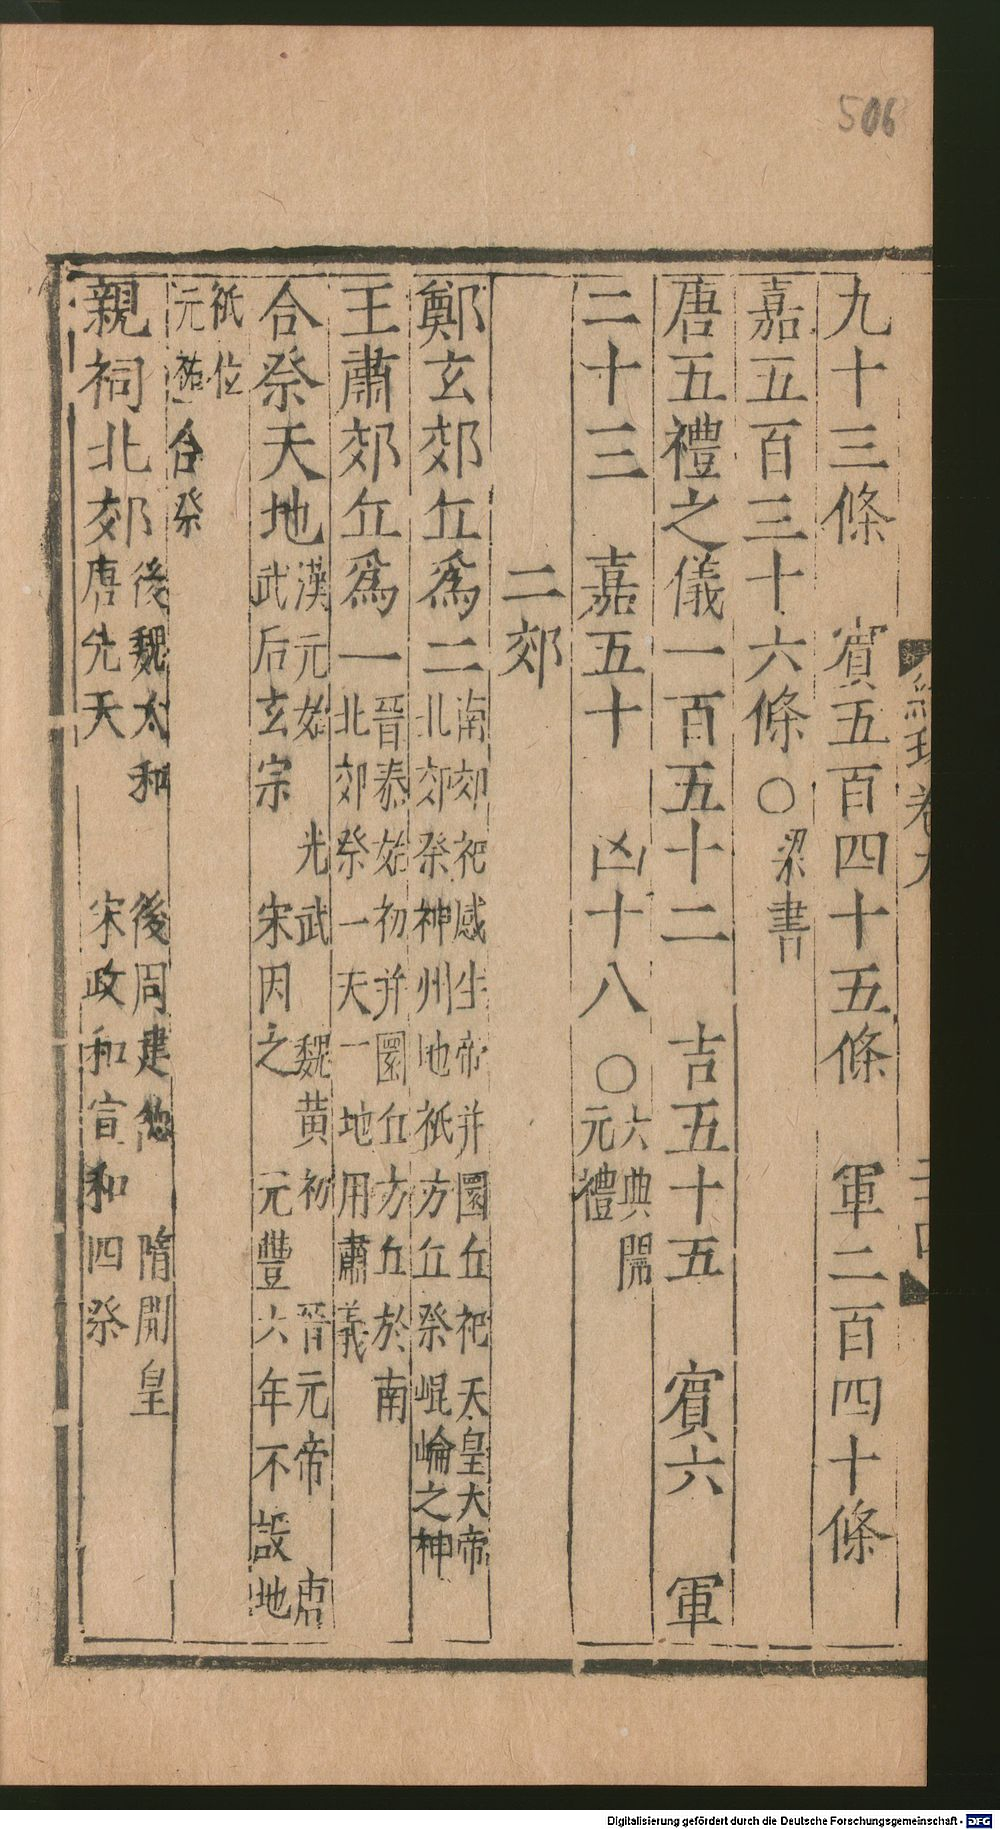 506
九十三條　賓五百四十五條　軍二百四十條
嘉五百三十六條○梁書
唐五禮之儀一百五十二　吉五十五　賓六　軍
二十三　嘉五十　凶十八　○六典開
元禮
二郊
鄭玄郊丘爲二南郊祀感生帝并圜丘祀天皇大帝
北郊祭神州地祇方丘祭崐崘之神
王肅郊丘爲一晉泰始初并圜丘方丘於南
北郊祭一天一地用肅義
合祭天地漢元始　光武　魏黄初　晉元帝　唐
武后玄宗　宋因之　元豐六年不設地
祇位
元祐合祭
親祠北郊後魏太和　後周建德　隋開皇
唐先天　宋政和宣和四祭
Digitalisierung gefördert durch die Deutsche Forschungsgemeinschaft - DFG